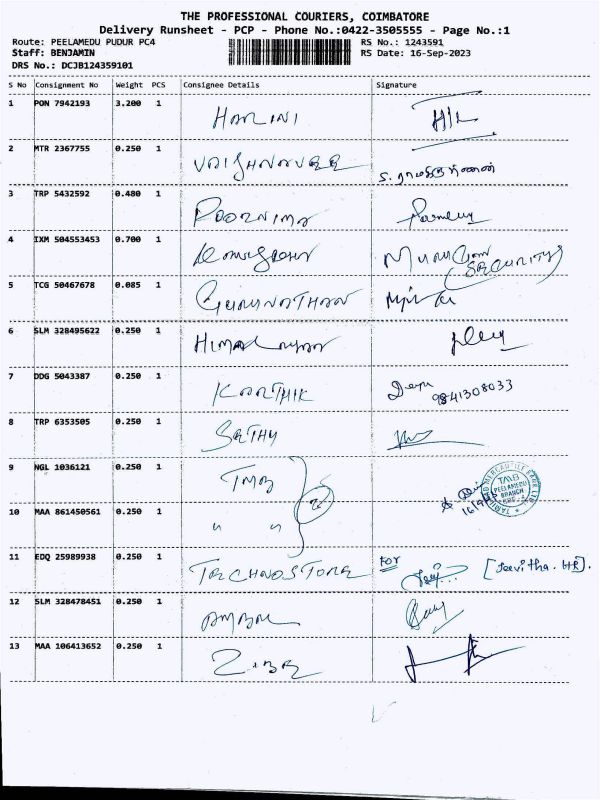 THE PROFESSIONAL COURIERS, COIMBATORE
Delivery Runsheet - PCP - Phone No.:0422-3505555 - Page No.:1
Route: PEELAMEDU PUDUR PC4 RS No.: 1243591
Staff: BENJAMIN RS Date: 16-Sep-2023
DRS No.: DCJB124359101
S No Consignment No Weight PCS Consignee Details Signature
1 PON 7942193 3.200 1 HARINI
2 MTR 2367755 0.250 1
3 TRP 5432592 0.480 1 POORNIMA
4 IXM 504553453 0.700 1 MURUGAN
SECURITY
5 TCG 50467678 0.085 1 GURUNATHAN
6 SLM 328495622 0.250 1
7 DDG 5043387 0.250 1 KARTHIK 9841308033
8 TRP 6353505 0.250 1 SETHU
9 NGL 1036121 0.250 1 TMB TMB PEELAMEDU BRANCH
10 MAA 861450561 0.250 1 " " 2
11 EDQ 25989938 0.250 1 TECHNOSTORE For [Jeevitha. HR].
12 SLM 328478451 0.250 1
13 MAA 106413652 0.250 1